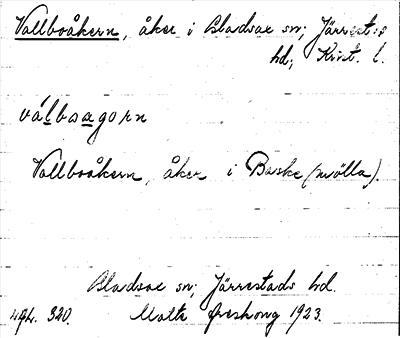 Vallboåkern, åker i Gladsax sn; Järrest:s
hd; Krist. l.
válboagorn
Vallboåkern, åker i Baske (mölla).
Gladsax sn; Järrestads hd.
320. Malte 1923.